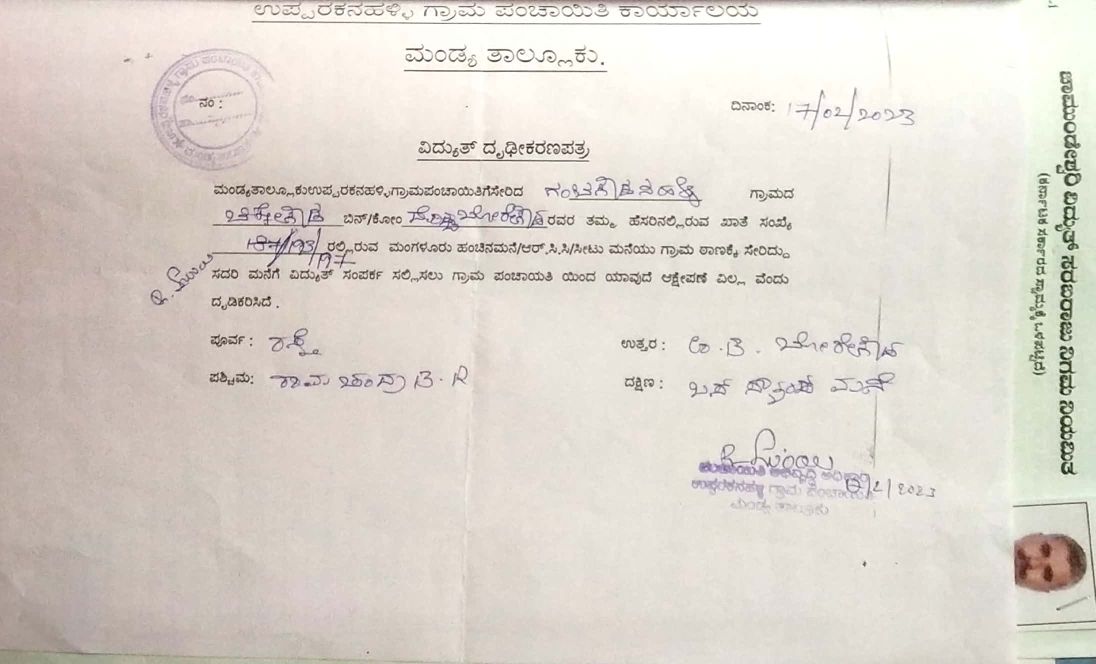 ಉಪ್ಪರಕನಹಳ್ಳಿ ಗ್ರಾಮ ಪಂಚಾಯಿತಿ ಕಾರ್ಯಾಲಯ
ಮಂಡ್ಯ ತಾಲ್ಲೂಕು.
ನಂ :
ದಿನಾಂಕ: 17/02/2023
ವಿದ್ಯುತ್ ದೃಢೀಕರಣಪತ್ರ
ಮಂಡ್ಯತಾಲ್ಲೂಕುಉಪ್ಪರಕನಹಳ್ಳಿಗ್ರಾಮಪಂಚಾಯಿತಿಗೆಸೇರಿದ ಗ್ರಾಮದ
ಬಿನ್/ಕೋಂ ರವರ ತಮ್ಮ ಹೆಸರಿನಲ್ಲಿರುವ ಖಾತೆ ಸಂಖ್ಯೆ
187/193/197 ರಲ್ಲಿರುವ ಮಂಗಳೂರು ಹಂಚಿನಮನೆ/ಆರ್.ಸಿ.ಸಿ/ಸೀಟು ಮನೆಯು ಗ್ರಾಮ ಠಾಣಕ್ಕೆ ಸೇರಿದ್ದು
ಸದರಿ ಮನೆಗೆ ವಿದ್ಯುತ್ ಸಂಪರ್ಕ ಸಲ್ಲಿಸಲು ಗ್ರಾಮ ಪಂಚಾಯತಿ ಯಿಂದ ಯಾವುದೆ ಆಕ್ಷೇಪಣೆ ವಿಲ್ಲ ವೆಂದು
ದೃಡಿಕರಿಸಿದೆ .
ಪೂರ್ವ : ರಸ್ತೆ
ಉತ್ತರ : ಬೋರೇಗೌಡ
ಪಶ್ಚಿಮ: ರಾಮಚಂದ್ರ B.R
ದಕ್ಷಿಣ : ಮನೆ
ಪಂಚಾಯಿತಿ ಅಭಿವೃದ್ಧಿ ಅಧಿಕಾರಿ
ಉಪ್ಪರಕನಹಳ್ಳಿ ಗ್ರಾಮ ಪಂಚಾಯಿತಿ
ಮಂಡ್ಯ ತಾಲ್ಲೂಕು
/2/2023
ಚಾಮುಂಡೇಶ್ವರಿ ವಿದ್ಯುತ್ ಸರಬರಾಜು ನಿಗಮ ನಿಯಮಿತ
(ಕರ್ನಾಟಕ ಸರ್ಕಾರದ ಸ್ವಾಮ್ಯಕ್ಕೆ ಒಳಪಟ್ಟಿದೆ)